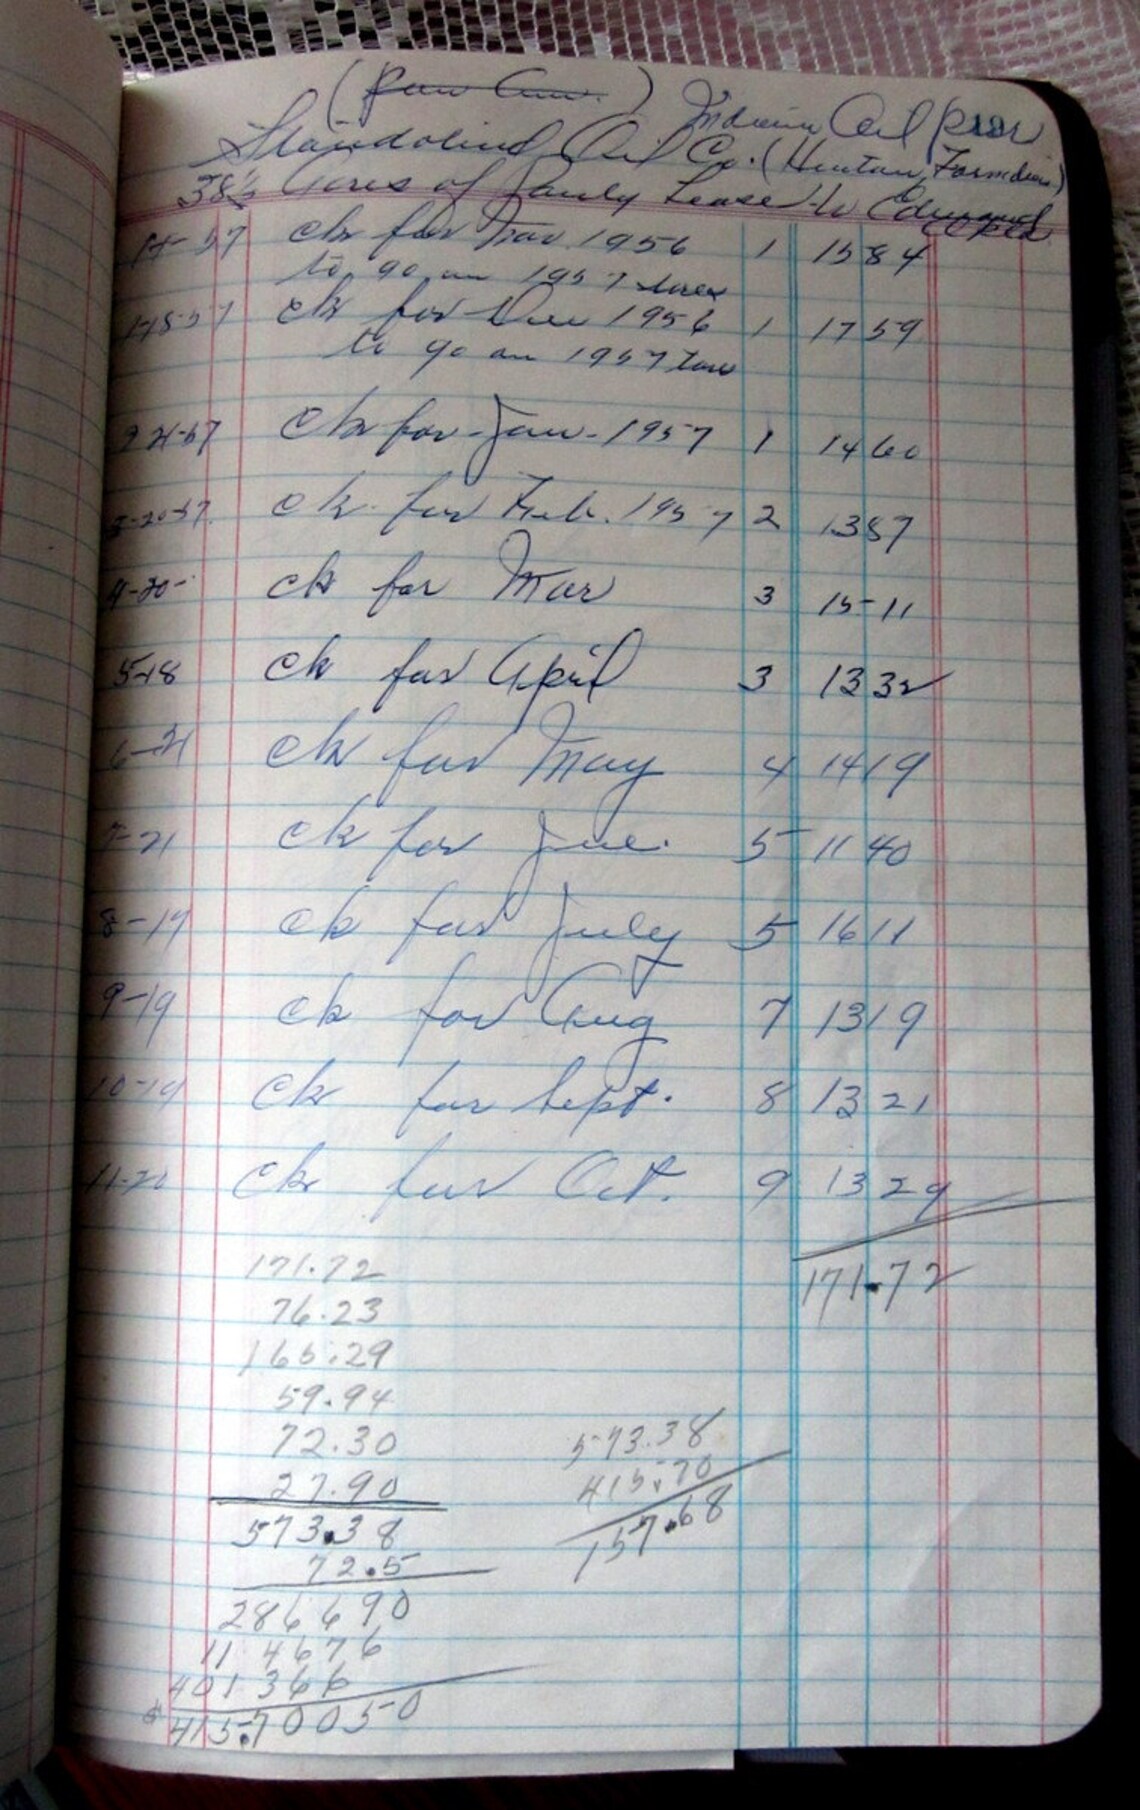 (Pan Am.) Indiana Oil Pur
Standolind Oil Co. (Hunton Formation)
38⅓ Acres of Pauly Lease W Edmond
1-1-57 ck for Nov. 1956 1 15 84
to go on 1957 taxes
1-18-57 ck for Dec 1956 1 17 59
to go on 1957 taxes
2-21-57 ck for Jan - 1957 1 14 60
3-20-57 ck for Feb. 1957 2 13 87
4-20- ck for Mar 3 15-11
5-18 ck for April 3 13 32
6-21 ck for May 4 14 19
7-21 ck for June 5 11 40
8-19 ck for July 5 16 11
9-19 ck for Aug 7 13 19
10-19 ck for Sept. 8 13 21
11-20 ck for Oct. 9 13 29
171.72
171.72
76.23
165.29
59.94
72.30
27.90
573.38
72.5
286690
114676
401366
$415.70050
573.38
415.70
157.68